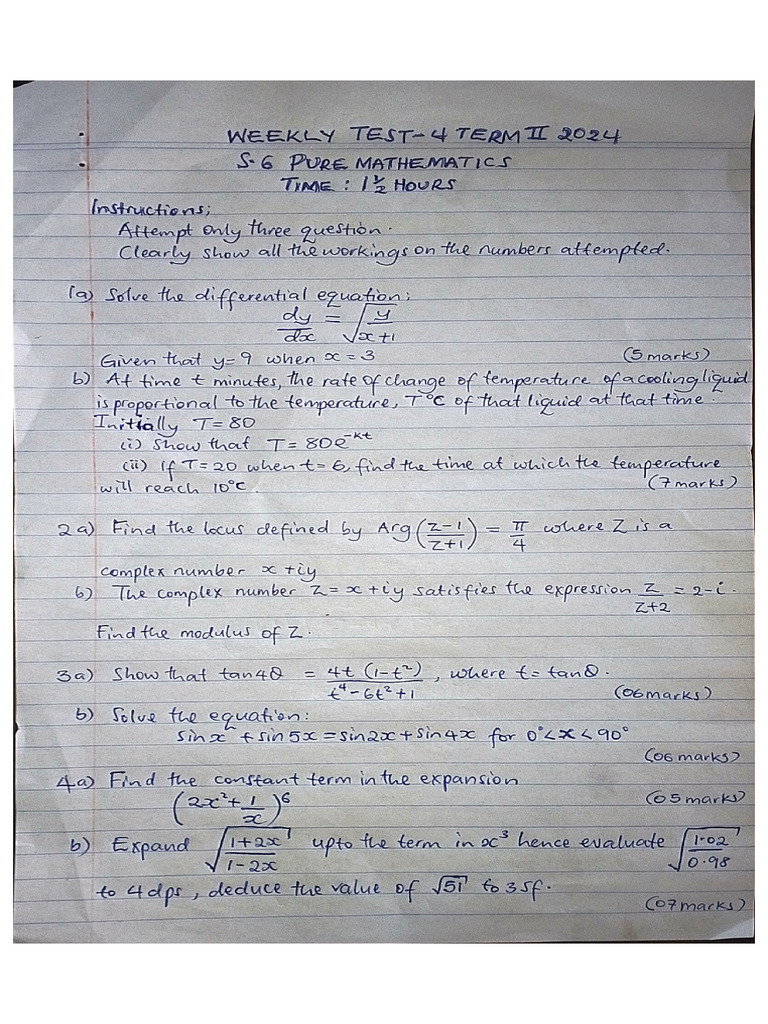 WEEKLY TEST-4 TERM II 2024
S.6 PURE MATHEMATICS
TIME : 1½ HOURS
Instructions;
Attempt only three question.
Clearly show all the workings on the numbers attempted.
1a) Solve the differential equation;
dy/dx = √(y/(x+1))
Given that y=9 when x=3 (5 marks)
b) At time t minutes, the rate of change of temperature of a cooling liquid
is proportional to the temperature, T°C of that liquid at that time.
Initially T=80
(i) Show that T= 80e^-kt
(ii) If T=20 when t=6, find the time at which the temperature
will reach 10°c. (7 marks)
2a) Find the locus defined by Arg((Z-1)/(Z+1)) = π/4 where Z is a
complex number x+iy
b) The complex number Z=x+iy satisfies the expression Z/(Z+2) = 2-i.
Find the modulus of Z.
3a) Show that tan4θ = 4t(1-t²)/(t⁴-6t²+1), where t=tanθ.
(06marks)
b) Solve the equation:
sinx + sin5x = sin2x + sin4x for 0°<x<90°
(06 marks)
4a) Find the constant term in the expansion
(2x²+1/x)⁶ (05 marks)
b) Expand √((1+2x)/(1-2x)) upto the term in x³ hence evaluate √(1.02/0.98)
to 4dps, deduce the value of √51 to 3sf.
(07marks)